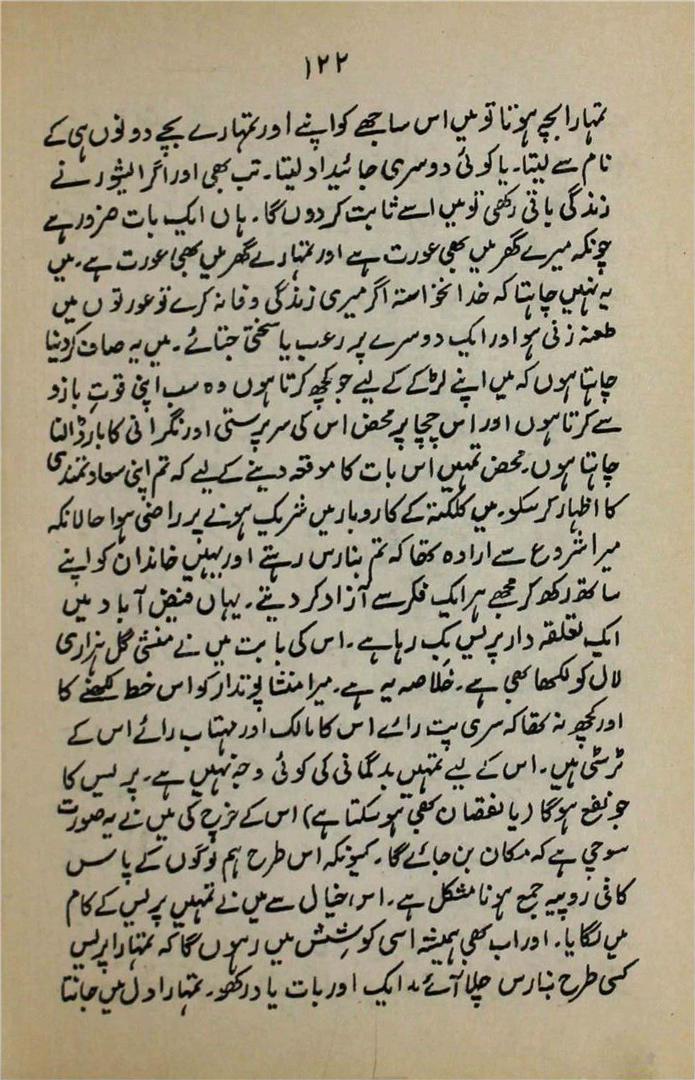 ۱۲۲
تمہارا بچے ہوتا تو میں اس ساجھے کو اپنے اور تمہارے بچے دونوں ہی کے
نام سے لیتا۔ یا کوئی دوسری جائیداد لیتا۔ تب بھی اور اگر ایشور نے
زندگی باقی رکھی تو میں اسے ثابت کر دوں گا۔ ہاں ایک بات ضرور ہے
چونکہ میرے گھر میں بھی عورت ہے اور تمہارے گھر میں بھی عورت ہے۔ میں
یہ نہیں چاہتا کہ خدانخواستہ اگر میری زندگی وفا نہ کرے تو عورتوں میں
طعنہ زنی ہو اور ایک دوسرے پر رعب یا سختی جتائے۔ میں یہ صاف کر دینا
چاہتا ہوں کہ میں اپنے لڑکے کے لیے جو کچھ کرتا ہوں وہ سب اپنی قوتِ بازو
سے کرتا ہوں اور اس چچا پر محض اس کی سرپرستی اور نگرانی کا بار ڈالنا
چاہتا ہوں۔ محض تمہیں اس بات کا موقعہ دینے کے لیے کہ تم اپنی سعادتمندی
کا اظہار کر سکو۔ میں کلکتہ کے کاروبار میں شریک ہونے پر راضی ہوا حالانکہ
میرا شروع سے ارادہ تھا کہ تم بنارس رہتے اور یہیں خاندان کو اپنے
ساتھ رکھ کر مجھے ہر ایک فکر سے آزاد کر دیتے۔ یہاں فیض آباد میں
ایک تعلقہ دار پریس بک رہا ہے۔ اس کی بابت میں نے منشی گل ہزاری
لال کو لکھا بھی ہے۔ خلاصہ یہ ہے۔ میرا منشا پوتدار کو اس خط لکھنے کا
اور کچھ نہ تھا کہ سری پت رائے اس کا مالک اور مہتاب رائے اس کے
ٹرسٹی ہیں۔ اس کے لیے تمہیں بدگمانی کی کوئی وجہ نہیں ہے۔ پریس کا
جو نفع ہوگا (یا نقصان بھی ہو سکتا ہے) اس کے خرچ کی میں نے یہ صورت
سوچی ہے کہ مکان بن جائے گا۔ کیونکہ اس طرح ہم لوگوں کے پاس
کافی روپیہ جمع ہونا مشکل ہے۔ اس خیال سے میں نے تمہیں پریس کے کام
میں لگایا۔ اور اب بھی ہمیشہ اسی کوشش میں رہوں گا کہ تمہارا پریس
کسی طرح بنارس چلا آئے۔ ایک اور بات یاد رکھو۔ تمہارا دل میں جانتا